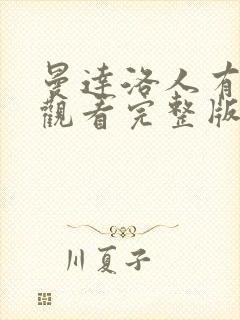 曼達洛人有
觀看完整版
川夏子